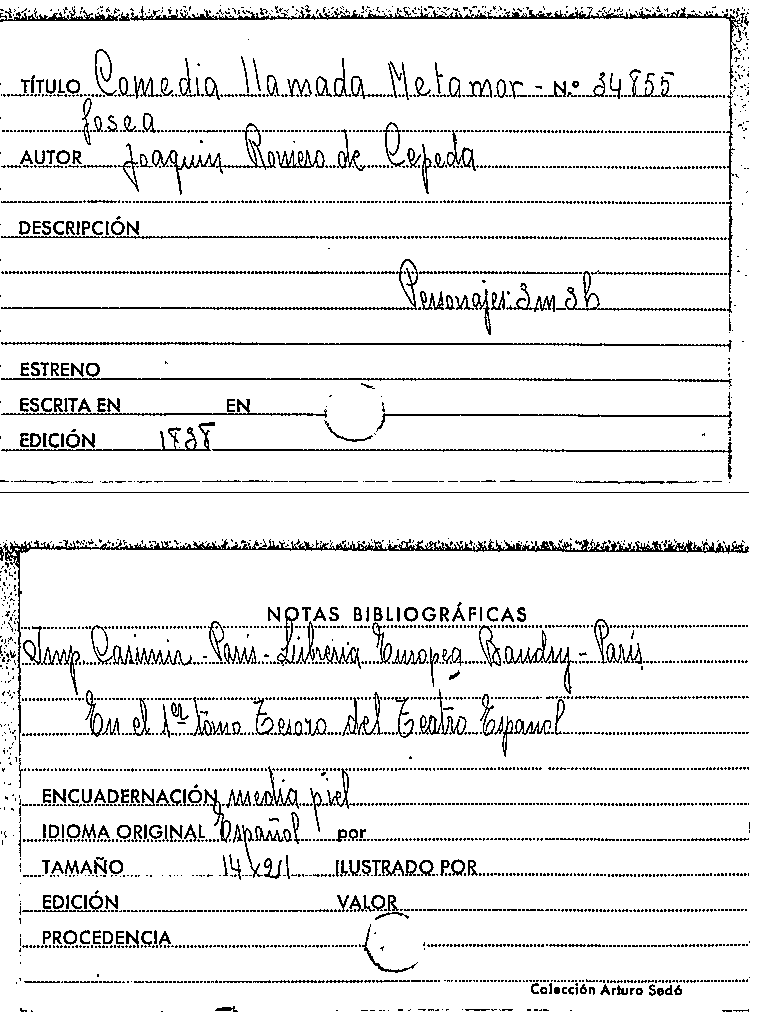 TÍTULO Comedia llamada Metamor - N.º 34855
fosea
AUTOR Joaquin Romero de Cepeda
DESCRIPCIÓN
Personajes: 3m 3h
ESTRENO
ESCRITA EN EN
EDICIÓN 1838
NOTAS BIBLIOGRÁFICAS
Imp Casimir - Paris - Libreria Europea Baudry - París
En el 1er tomo Tesoro del Teatro Español
ENCUADERNACIÓN media piel
IDIOMA ORIGINAL Español por
TAMAÑO 14x21 ILUSTRADO POR
EDICIÓN VALOR
PROCEDENCIA
Colección Arturo Sedó